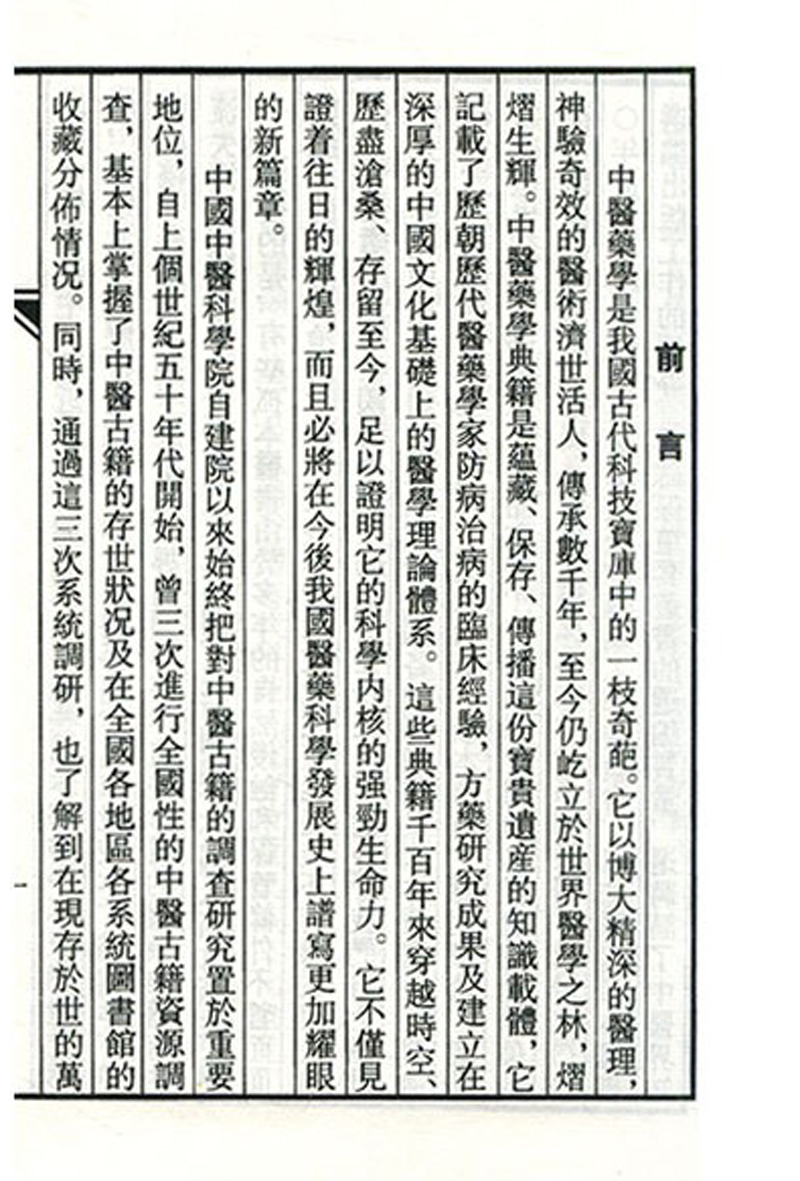 前言
中醫藥學是我國古代科技寶庫中的一枝奇葩。它以博大精深的醫理，
神驗奇效的醫術濟世活人，傳承數千年，至今仍屹立於世界醫學之林，熠
熠生輝。中醫藥學典籍是蘊藏、保存、傳播這份寶貴遺産的知識載體，它
記載了歷朝歷代醫藥學家防病治病的臨床經驗，方藥研究成果及建立在
深厚的中國文化基礎上的醫學理論體系。這些典籍千百年來穿越時空、
歷盡滄桑、存留至今，足以證明它的科學内核的强勁生命力。它不僅見
證着往日的輝煌，而且必將在今後我國醫藥科學發展史上譜寫更加耀眼
的新篇章。
中國中醫科學院自建院以來始終把對中醫古籍的調查研究置於重要
地位，自上個世紀五十年代開始，曾三次進行全國性的中醫古籍資源調
查，基本上掌握了中醫古籍的存世狀况及在全國各地區各系統圖書館的
收藏分佈情况。同時，通過這三次系統調研，也了解到在現存於世的萬
一